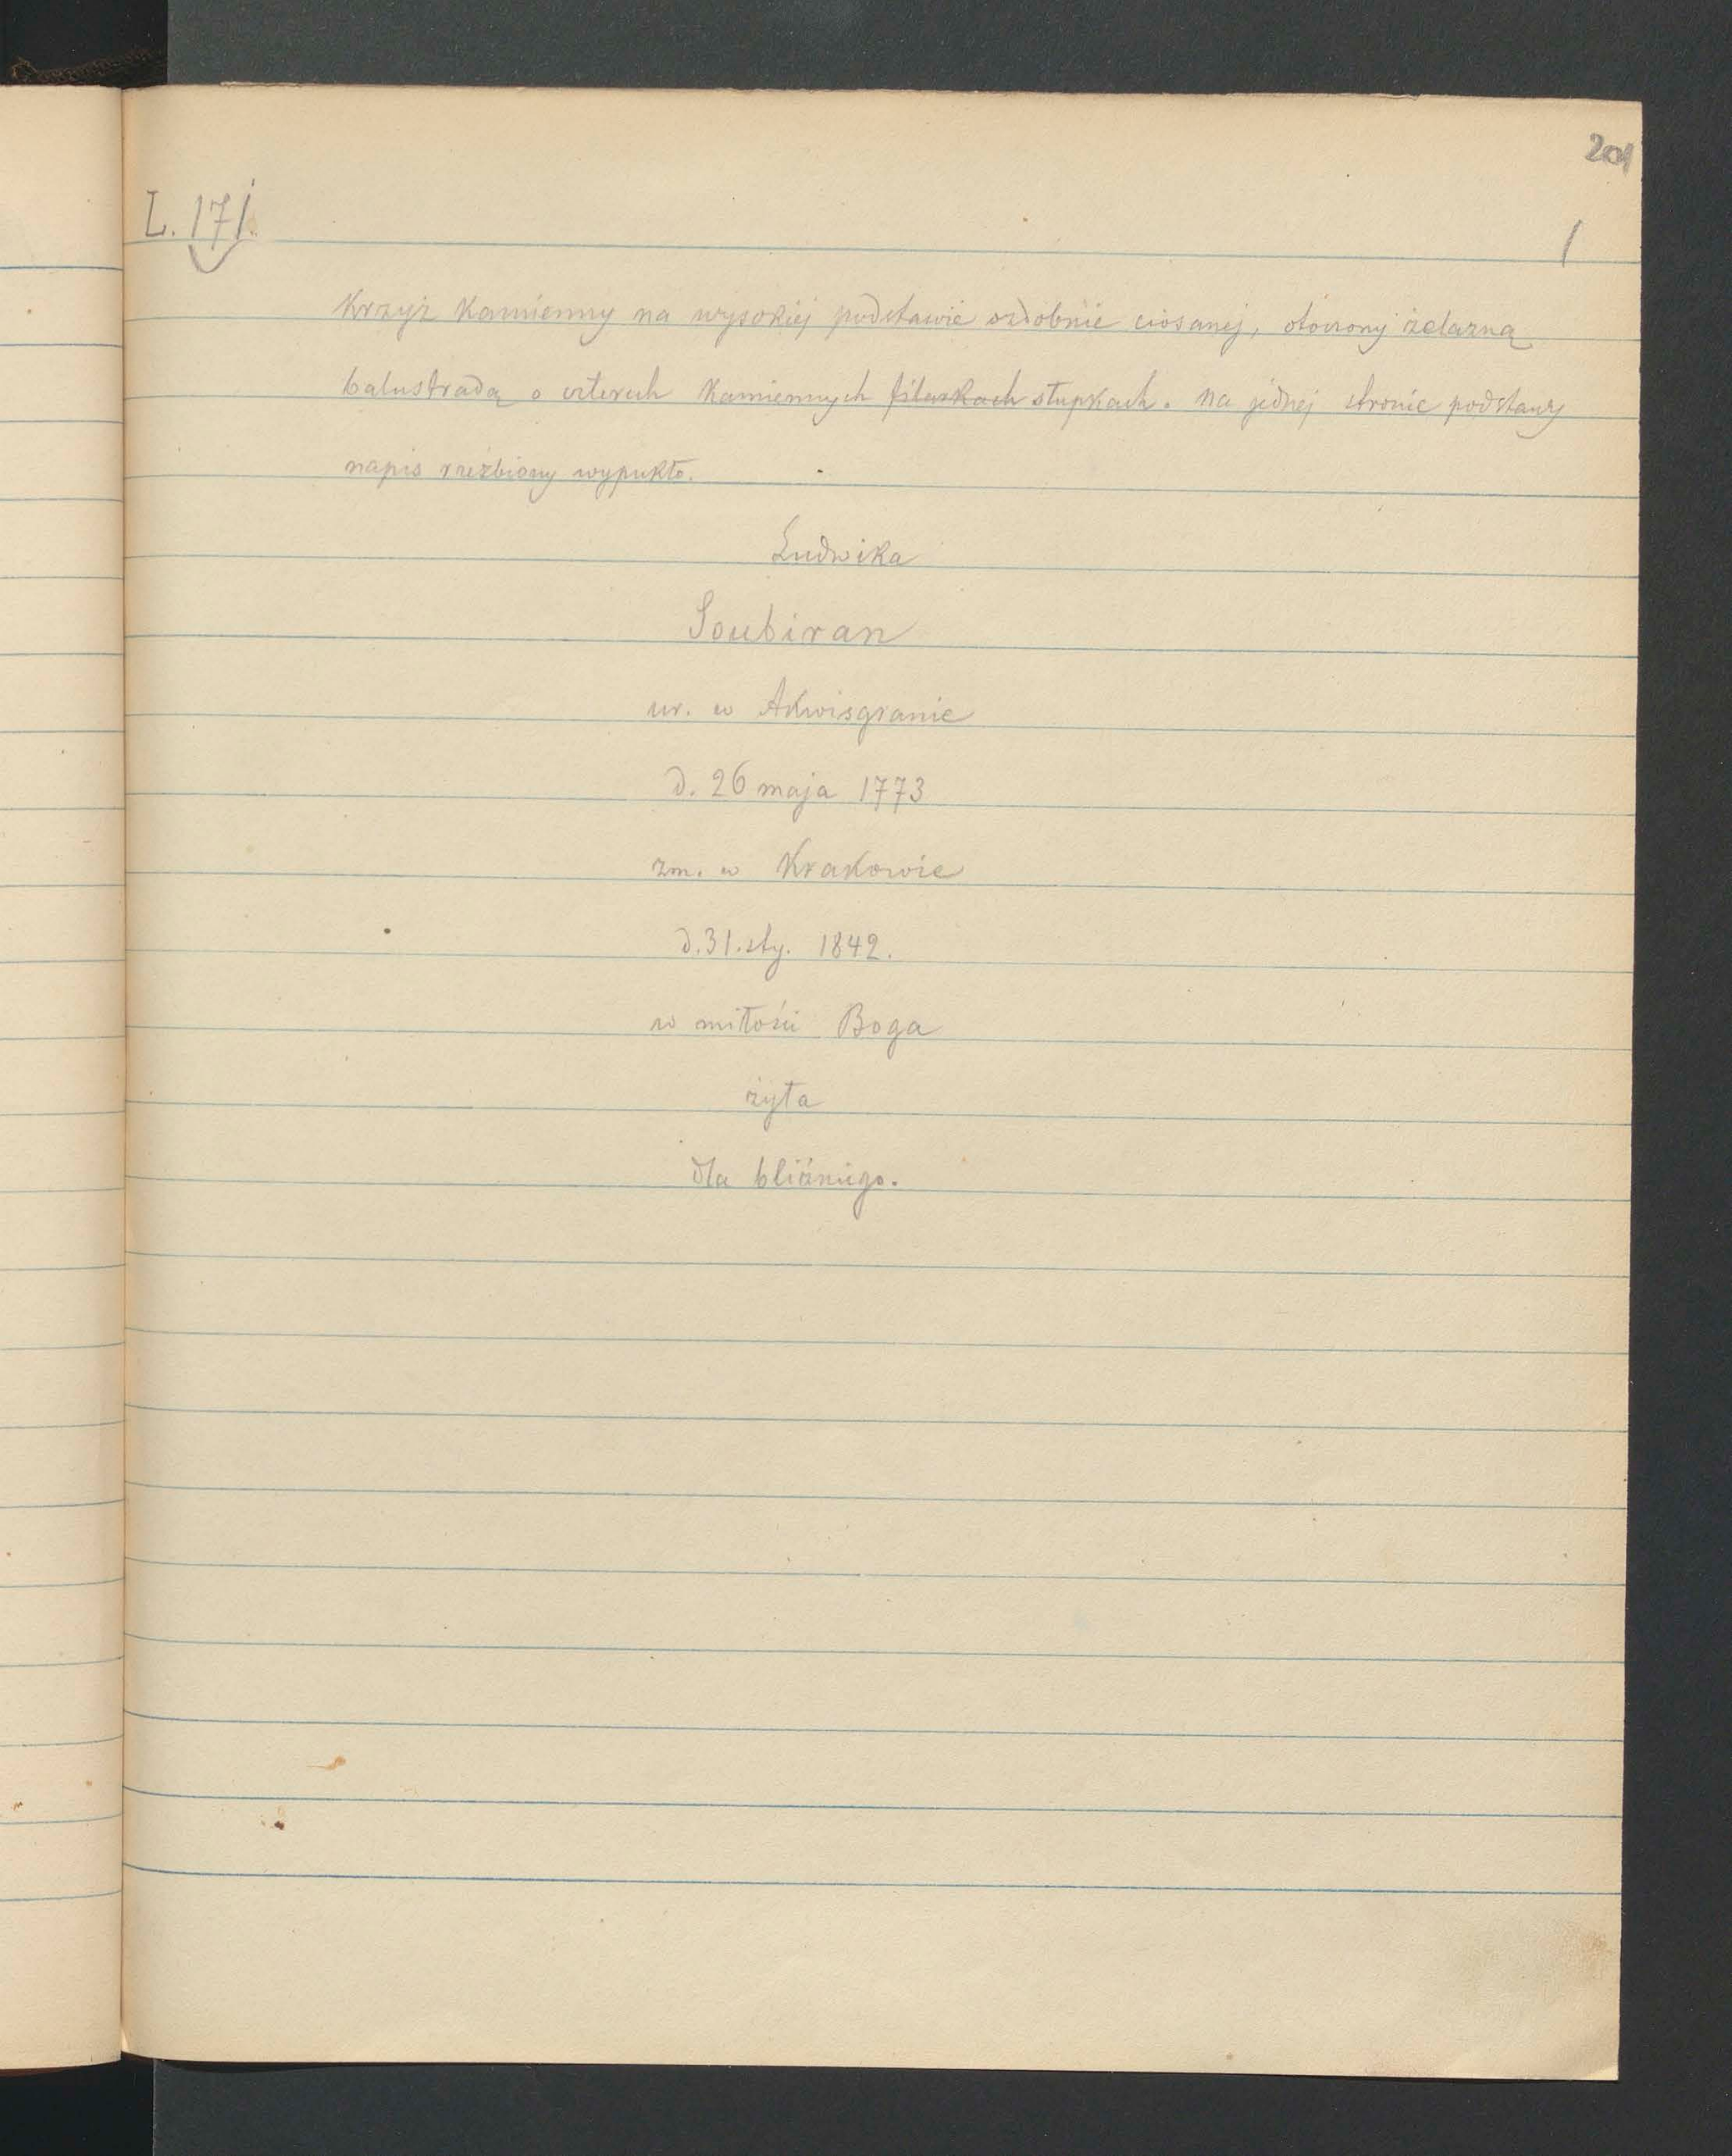 201
L. 171.
1
Krzyż kamienny na wysokiej podstawie ozdobnie ciosanej, otoczony żelazną
balustradą o czterech kamiennych filarkach słupkach. Na jednej stronie podstawy
napis rzeźbiony wypukło.
Ludwika
Soubiran
ur. w Akwisgranie
d. 26 maja 1773
zm. w Krakowie
d. 31. sty. 1842.
w miłości Boga
żyła
dla bliźniego.